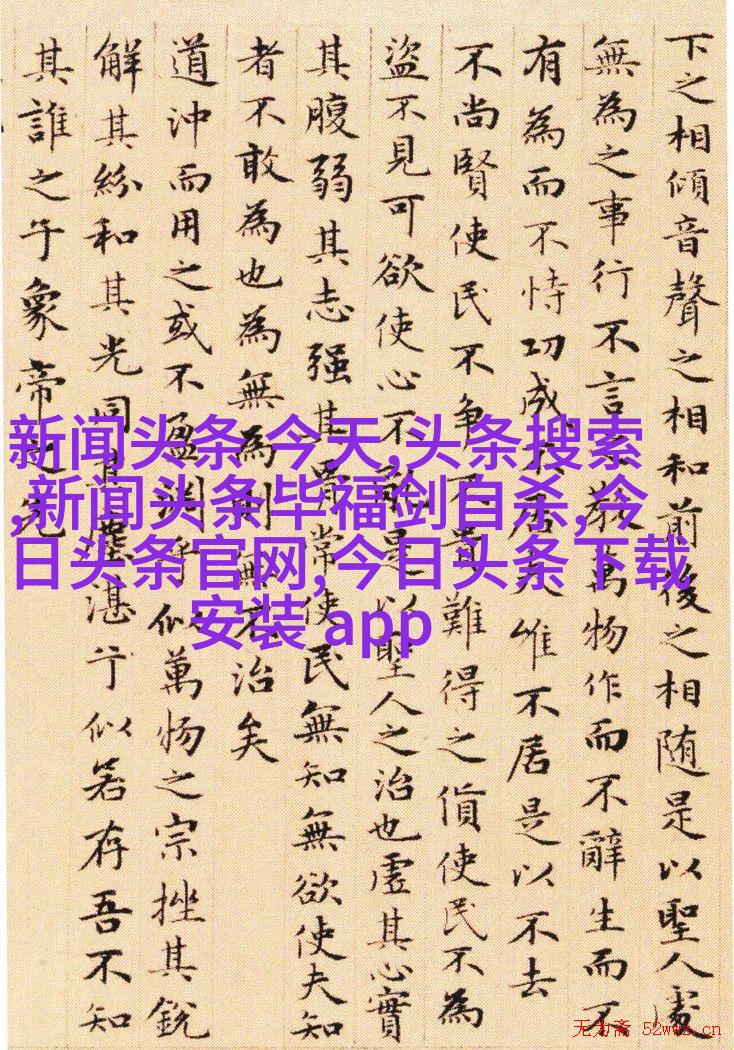 下之相傾音聲之相和前後之相随是以聖人處
無為之事行不言之教萬物作而不辭生而不
有為而不恃功成不居夫惟不居是以不去
不尚賢使民不争不貴難得之貨使民不為
盜不見可欲使心不亂是以聖人之治也虛其心實
其腹弱其志强其骨常使民無知無欲使夫知
者不敢為也為無為則無不治矣
道沖而用之或不盈淵乎似萬物之宗挫其銳
解其紛和其光同其塵湛兮似若存吾不知
其誰之子象帝之先
新闻头条 今天,头条搜索
,新闻头条毕福剑自杀,今
日头条官网,今日头条下载
安装 app
无为斋 52wwz.cn